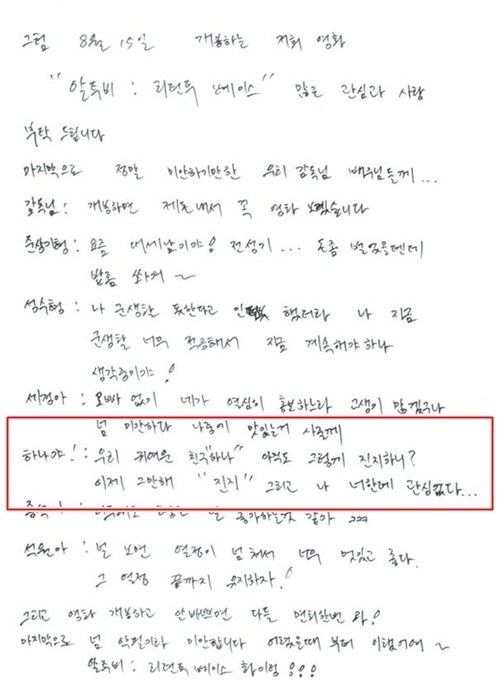 그럼 8월 15일 개봉하는 저희 영화
"알투비 : 리턴투 베이스" 많은 관심과 사랑
부탁 드립니다
마지막으로 정말 미안하기만한 우리 감독님 배우님들께...
감독님 : 개봉하면 제돈내서 꼭 영화 보겠습니다
준상이형 : 요즘 대세남이야! 전성기... 돈좀 벌었을텐데
밥좀 쏴줘 ~
성수형 : 나 군생활 못한다고 했더라 나 지금
군생활 너무 적응해서 지금 계속해야 하나
생각중이야!
세경아 : 오빠 없이 네가 열심히 홍보하느라 고생이 많겠구나
넘 미안하다 나중에 맛있는거 사줄께
하나야! : 우리 귀여운 친구 "하나" 아직도 그렇게 진지하니?
이제 그만해 "진지" 그리고 나 너한테 관심없다...
석원아 : 널 보면 열정이 넘쳐서 너무 멋있고 좋다.
그 열정 끝까지 유지하자!
그리고 영화 개봉하고 안바쁘면 다들 면회한번 와!
마지막으로 넘 악필이라 미안합니다 어렸을때 부터 이랬어여 ~
알투비 : 리턴투 베이스 화이팅!!!